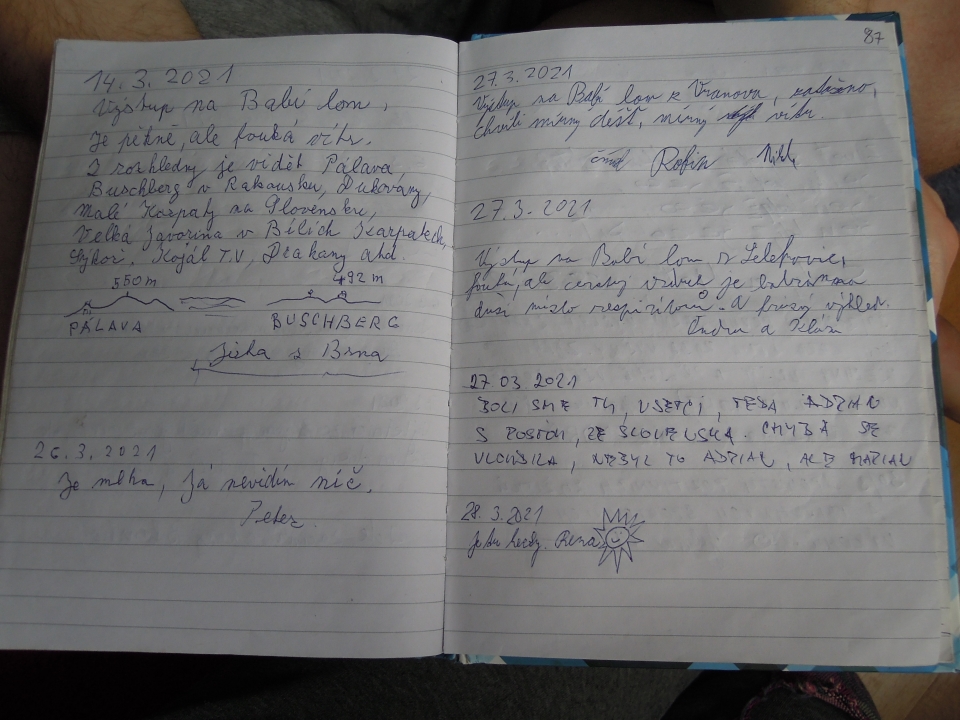 14.3.2021
Výstup na Babí lom,
Je pěkně, ale fouká vítr.
Z rozhledny je vidět Pálava
Buschberg v Rakousku, Dukovany,
Malé Karpaty na Slovensku,
Velká Javořina v Bílích Karpatech,
Kojál T.V, Drahany ahd.
550m
492 m
PÁLAVA
BUSCHBERG
Jirka z Brna
26.3.2021
Je mlha, Já nevidím nič.
Peter
87
27.3.2021
Výstup na Babí lom z Vranova, zataženo,
chvíli mírný déšť, mírný vítr.
Robin
27.3.2021
Výstup na Babí lom z Lelekovic,
fouká, ale čerstvý vzduch je
duši místo respirátorů. A krásný výhled.
Ondra a Klára
27 03 2021
BOLI SME TU, VSETCI, TEDA ADRIAN
S ROSTOM, ZE SLOVENSKA. CHYBA SE
VLOUDILA, NEBYL TO ADRIAN, ALE MARIAN
28.3.2021
Je tu hezky. Rena